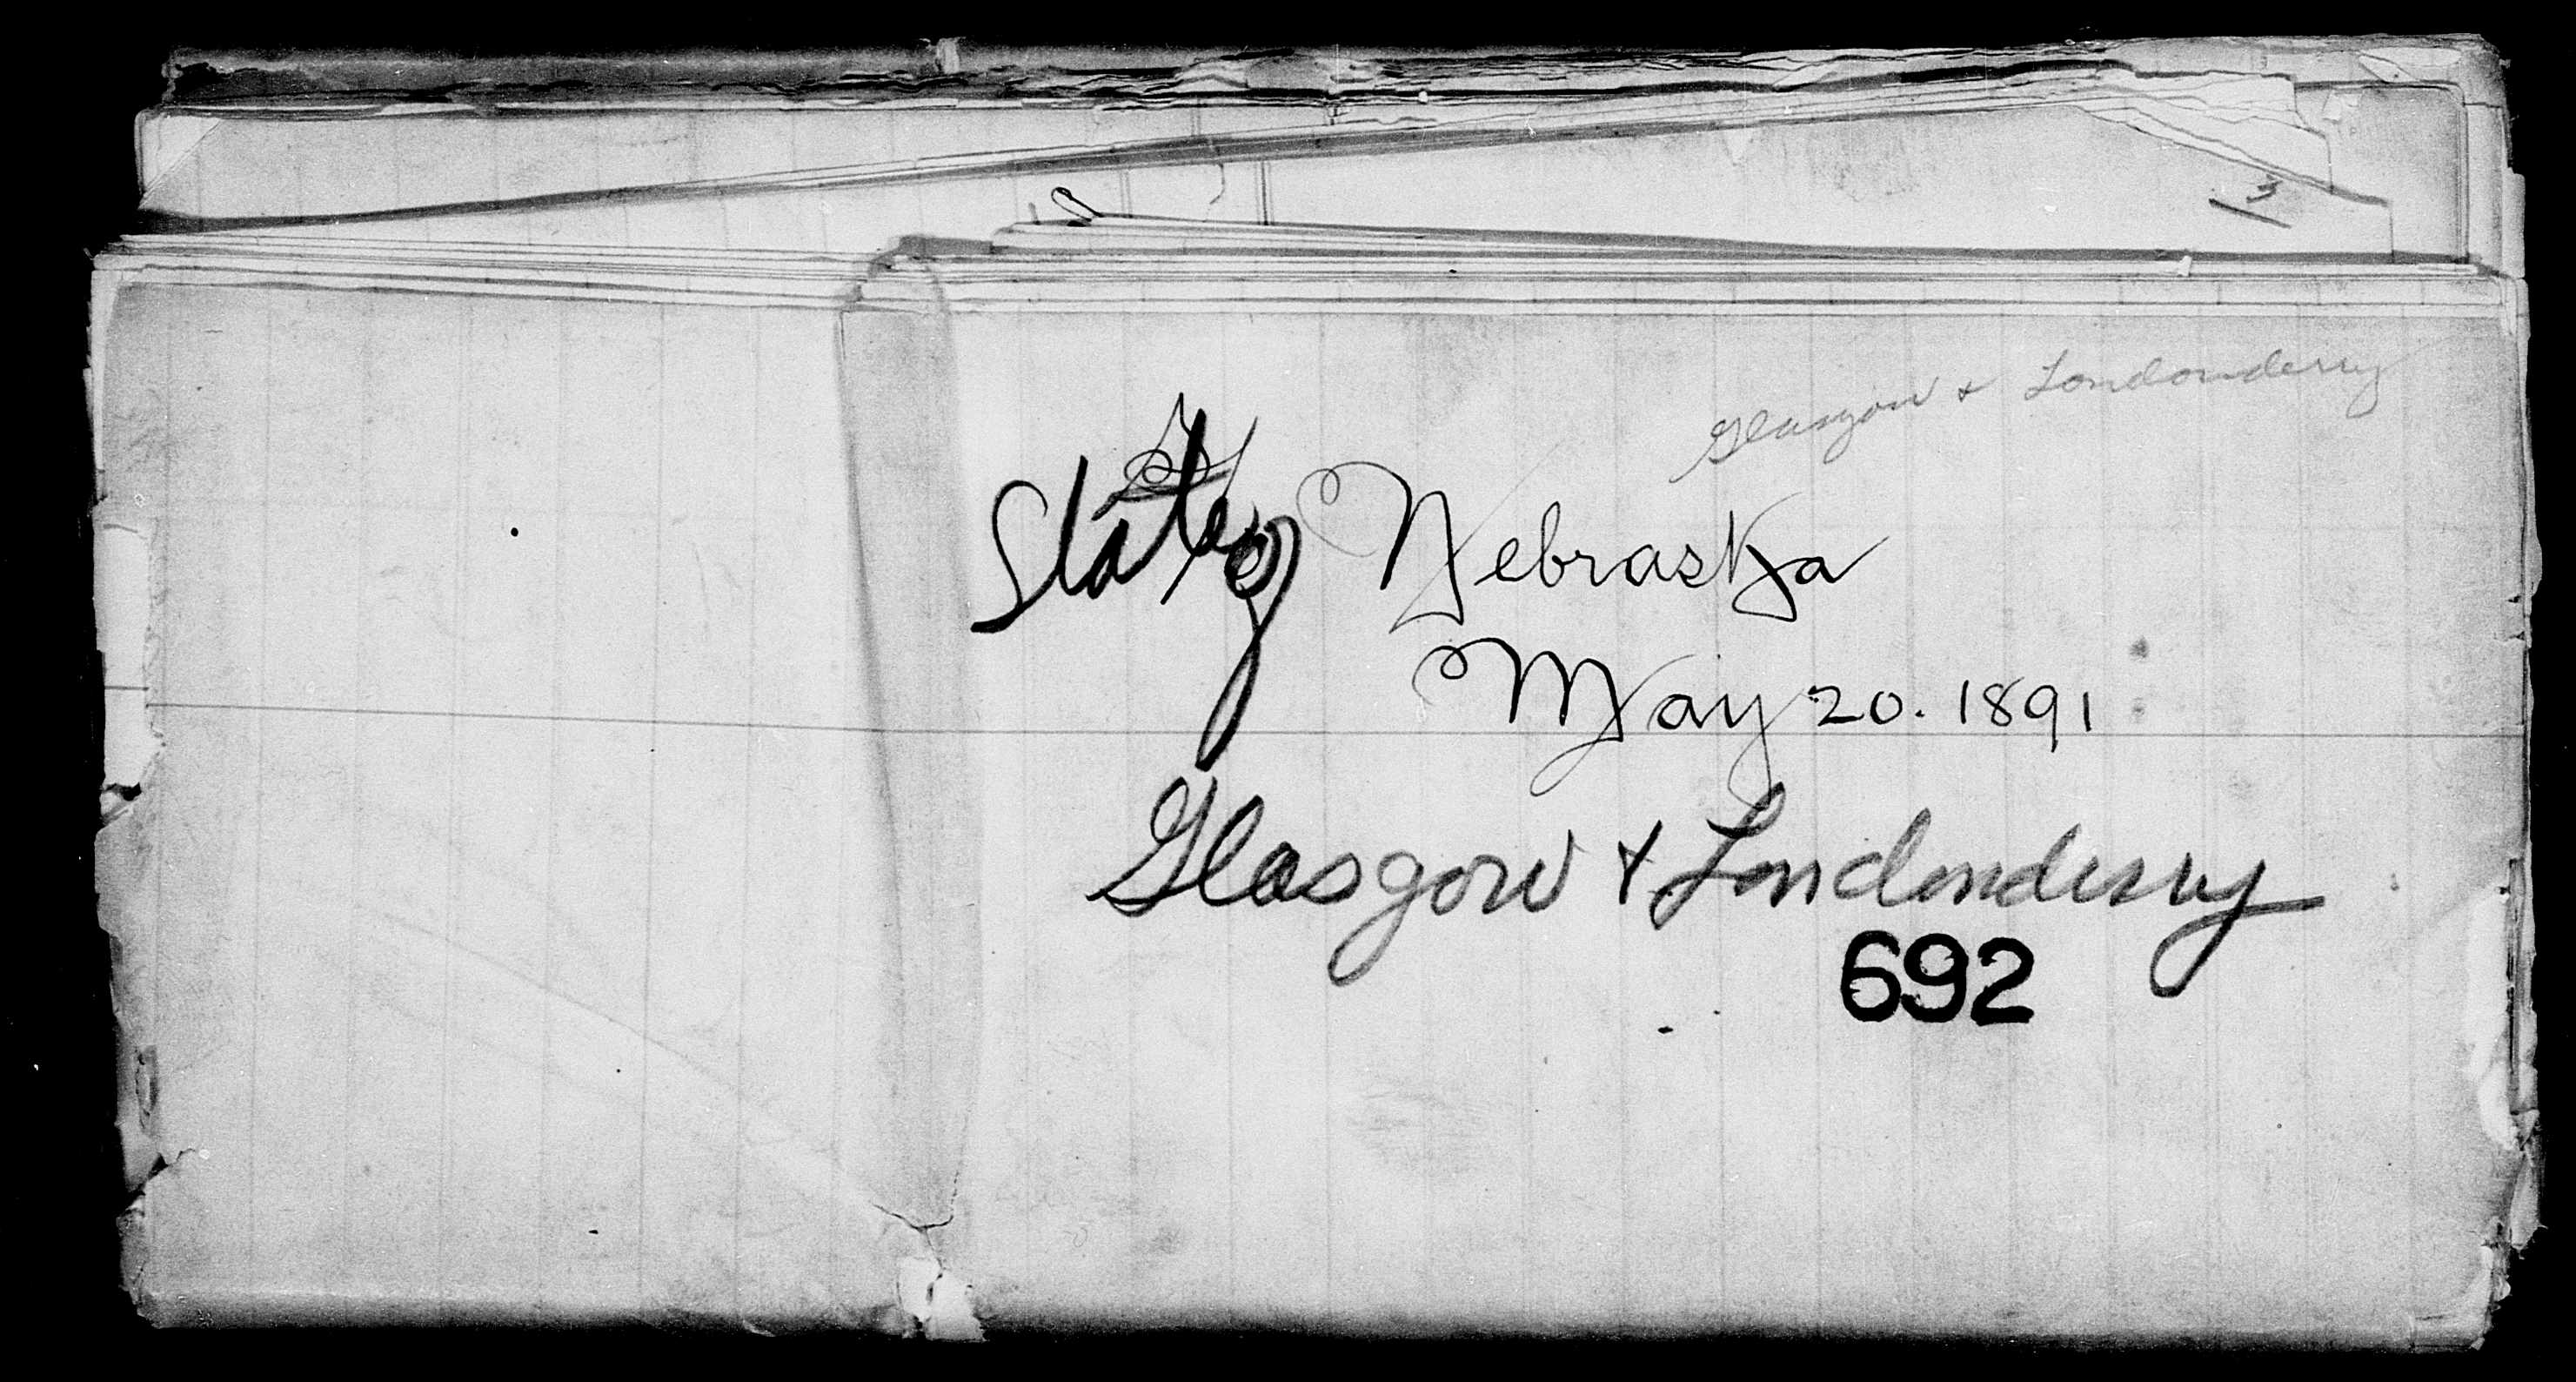 Glasgow & Londonderry
State of Nebraska
May 20. 1891
Glasgow & Londonderry
692